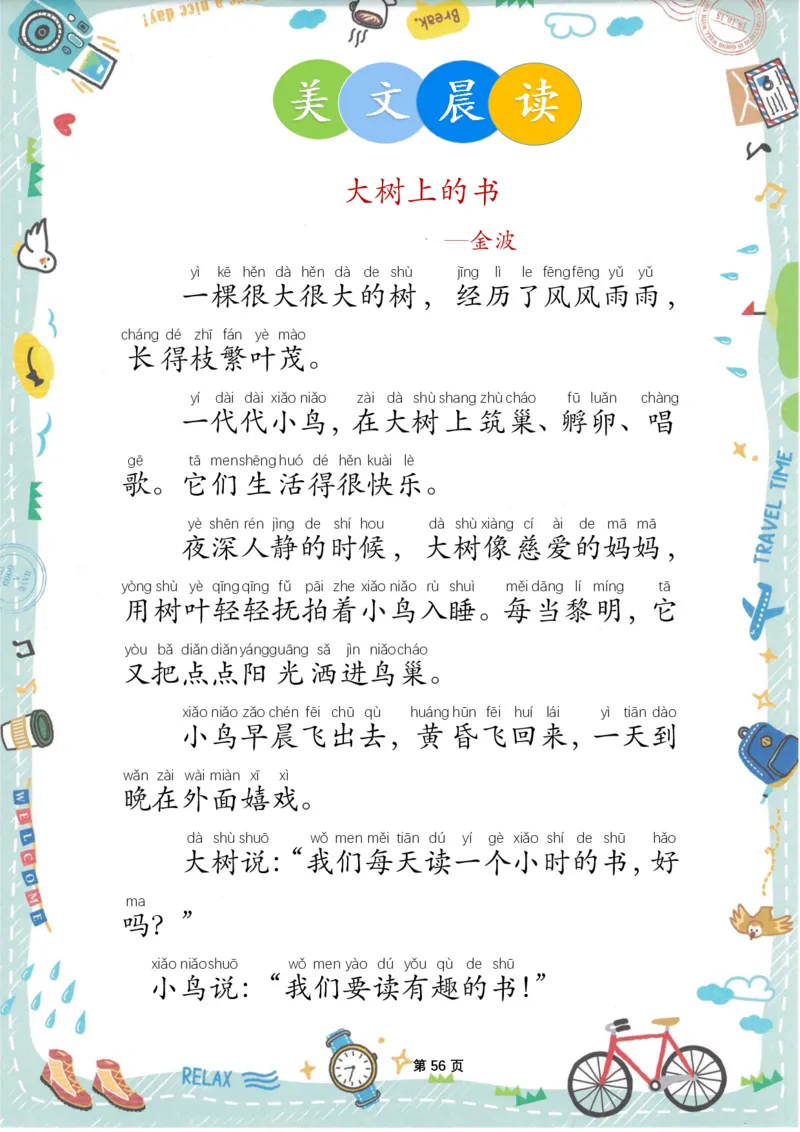 Have a nice day!
Break.
美文晨读
大树上的书
—金波
yì kē hěn dà hěn dà de shù jīng lì le fēngfēng yǔ yǔ
一棵很大很大的树，经历了风风雨雨，
cháng dé zhī fán yè mào
长得枝繁叶茂。
yí dài dài xiǎo niǎo zài dà shù shang zhù cháo fū luǎn chàng
一代代小鸟，在大树上筑巢、孵卵、唱
gē tā men shēng huó dé hěn kuài lè
歌。它们生活得很快乐。
yè shēn rén jìng de shí hou dà shù xiàng cí ài de mā mā
夜深人静的时候，大树像慈爱的妈妈，
yòng shù yè qīng qīng fǔ pāi zhe xiǎo niǎo rù shuì měi dāng lí míng tā
用树叶轻轻抚拍着小鸟入睡。每当黎明，它
yòu bǎ diǎn diǎn yáng guāng sǎ jìn niǎo cháo
又把点点阳光洒进鸟巢。
xiǎo niǎo zǎo chén fēi chū qù huáng hūn fēi huí lái yì tiān dào
小鸟早晨飞出去，黄昏飞回来，一天到
wǎn zài wài miàn xī xì
晚在外面嬉戏。
dà shù shuō wǒ men měi tiān dú yí gè xiǎo shí de shū hǎo
大树说：“我们每天读一个小时的书，好
ma
吗？”
xiǎo niǎo shuō wǒ men yào dú yǒu qù de shū
小鸟说：“我们要读有趣的书！”
TRAVEL TIME
WELCOME
RELAX
第 56 页